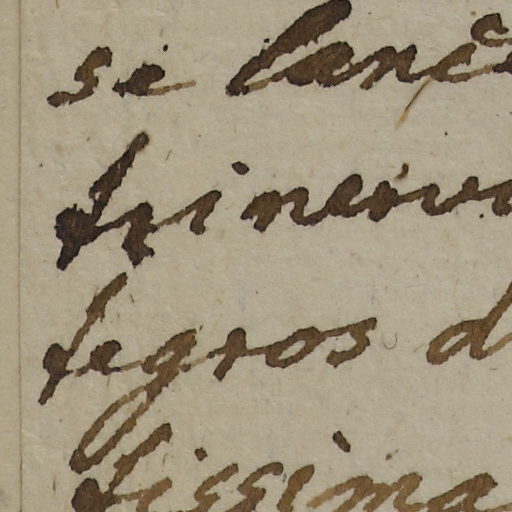 se lanc
trinerv
tegros d
tissima